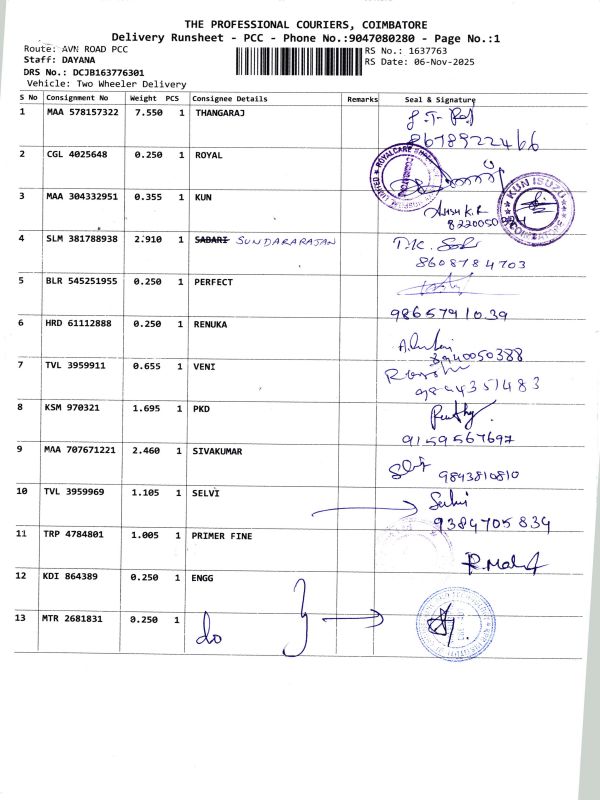 THE PROFESSIONAL COURIERS, COIMBATORE
Delivery Runsheet - PCC - Phone No.:9047080280 - Page No.:1
Route: AVN ROAD PCC
Staff: DAYANA
DRS No.: DCJB163776301
Vehicle: Two Wheeler Delivery
RS No.: 1637763
RS Date: 06-Nov-2025
S No Consignment No Weight PCS Consignee Details Remarks Seal & Signature
1 MAA 578157322 7.550 1 THANGARAJ
8678922466
2 CGL 4025648 0.250 1 ROYAL
3 MAA 304332951 0.355 1 KUN
KUN ISUZU
4 SLM 381788938 2.910 1 SABARI SUNDARARAJAN
8608784703
5 BLR 545251955 0.250 1 PERFECT
9865791039
6 HRD 61112888 0.250 1 RENUKA
7 TVL 3959911 0.655 1 VENI
9844351483
8 KSM 970321 1.695 1 PKD
9159567697
9 MAA 707671221 2.460 1 SIVAKUMAR
9843810810
10 TVL 3959969 1.105 1 SELVI
Selvi
9384705834
11 TRP 4784801 1.005 1 PRIMER FINE
12 KDI 864389 0.250 1 ENGG
13 MTR 2681831 0.250 1 do